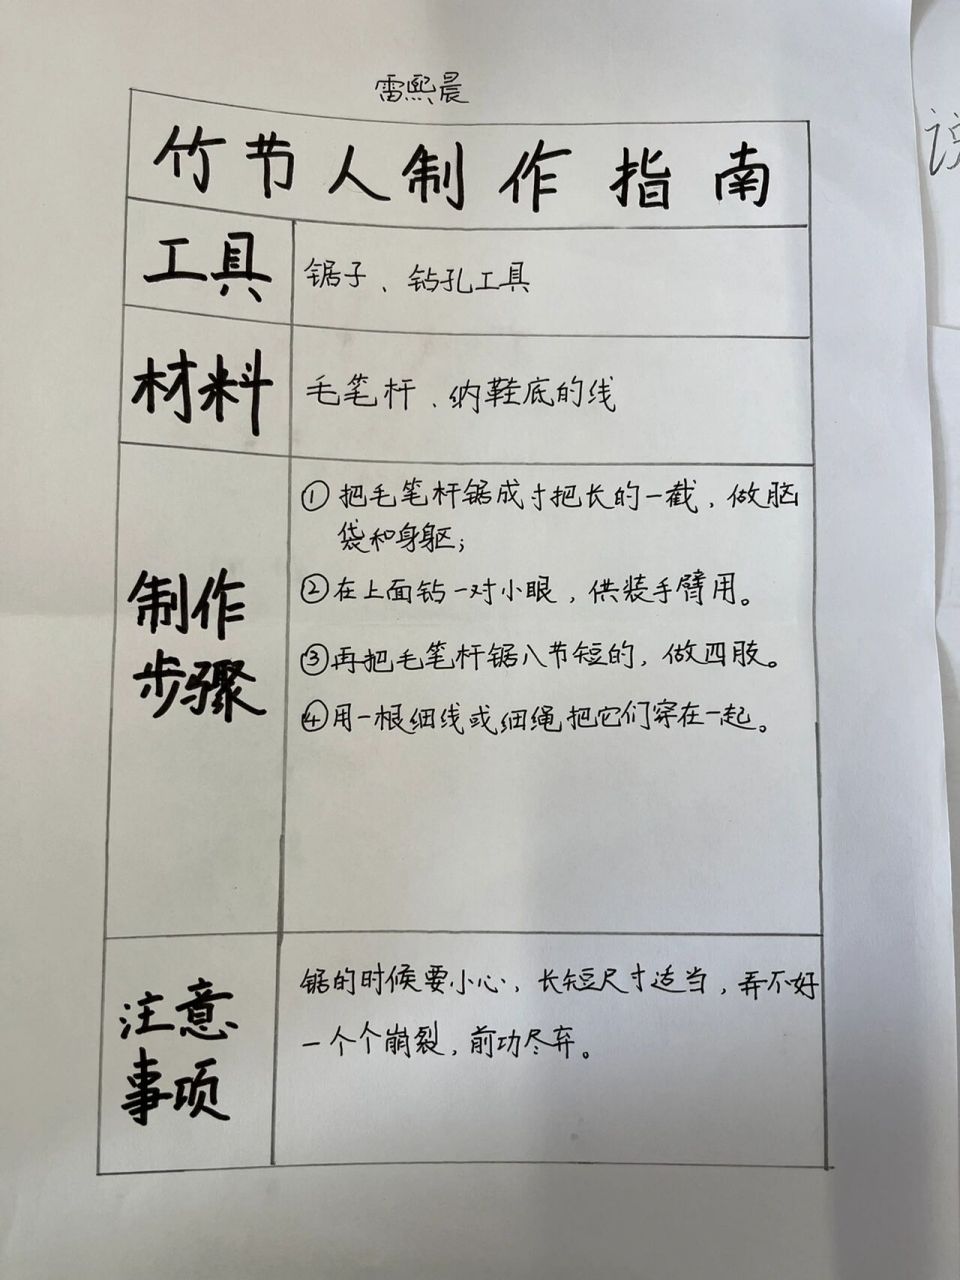 雷熙晨
竹节人制作指南
工具
锯子、钻孔工具
材料
毛笔杆、纳鞋底的线
制作
步骤
①把毛笔杆锯成寸把长的一截，做脑
袋和身躯；
②在上面钻一对小眼，供装手臂用。
③再把毛笔杆锯八节短的，做四肢。
④用一根细线或细绳把它们穿在一起。
注意
事项
锯的时候要小心，长短尺寸适当，弄不好
一个个崩裂，前功尽弃。